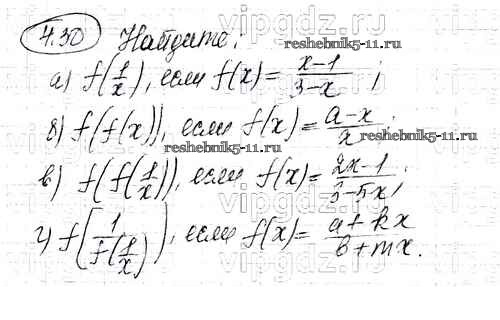 4.30 Найдите:
а) f(1/x), если f(x) = (x-1)/(3-x);
б) f(f(x)), если f(x) = (a-x)/x;
в) f(f(1/x)), если f(x) = (2x-1)/(3-5x);
г) f(1/f(1/x)), если f(x) = (a+kx)/(b+mx).
reshebnik5-11.ru
reshebnik5-11.ru
vipgdz.ru
vipgdz.ru
vipgdz.ru